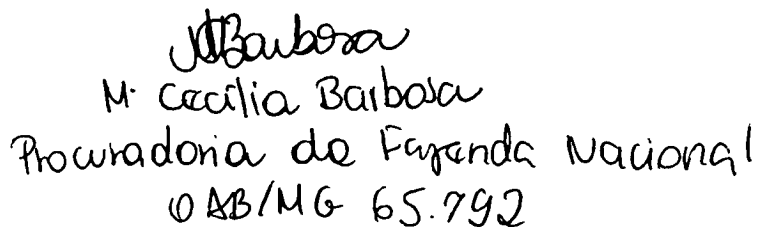 MCBarbosa
Mª Cecília Barbosa
Procuradoria da Fazenda Nacional
OAB/MG 65.792